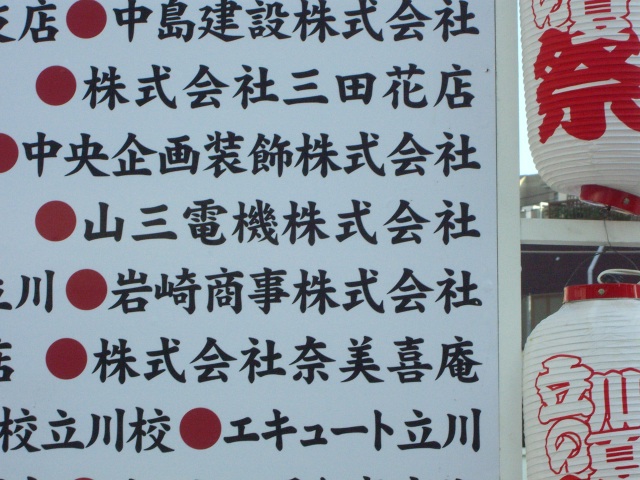 支店●中島建設株式会社
●株式会社三田花店
●中央企画装飾株式会社
●山三電機株式会社
立川●岩崎商事株式会社
店 ●株式会社奈美喜庵
校立川校●エキュート立川
祭
立川
の夏